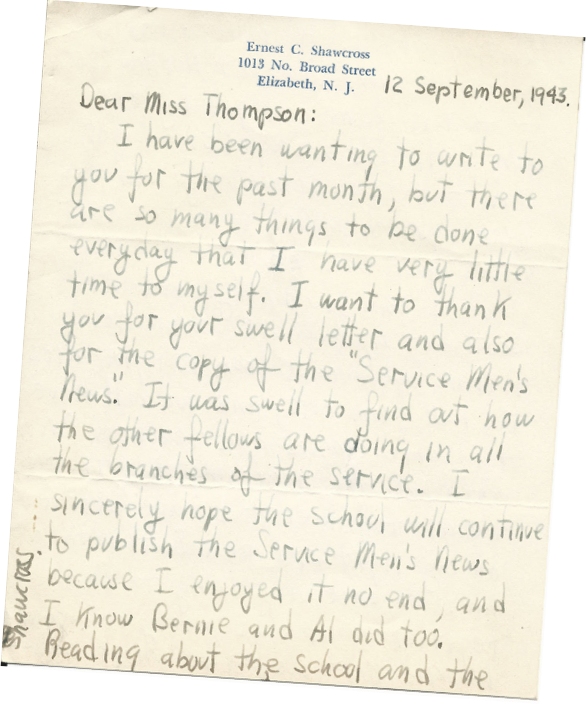 Ernest C. Shawcross
1013 No. Broad Street
Elizabeth, N. J.
12 September, 1943.
Dear Miss Thompson:
I have been wanting to write to
you for the past month, but there
are so many things to be done
everyday that I have very little
time to myself. I want to thank
you for your swell letter and also
for the copy of the "Service Men's
News." It was swell to find out how
the other fellows are doing in all
the branches of the service. I
sincerely hope the school will continue
to publish the Service Men's News
because I enjoyed it no end, and
I know Bernie and Al did too.
Reading about the school and the
Shawcross